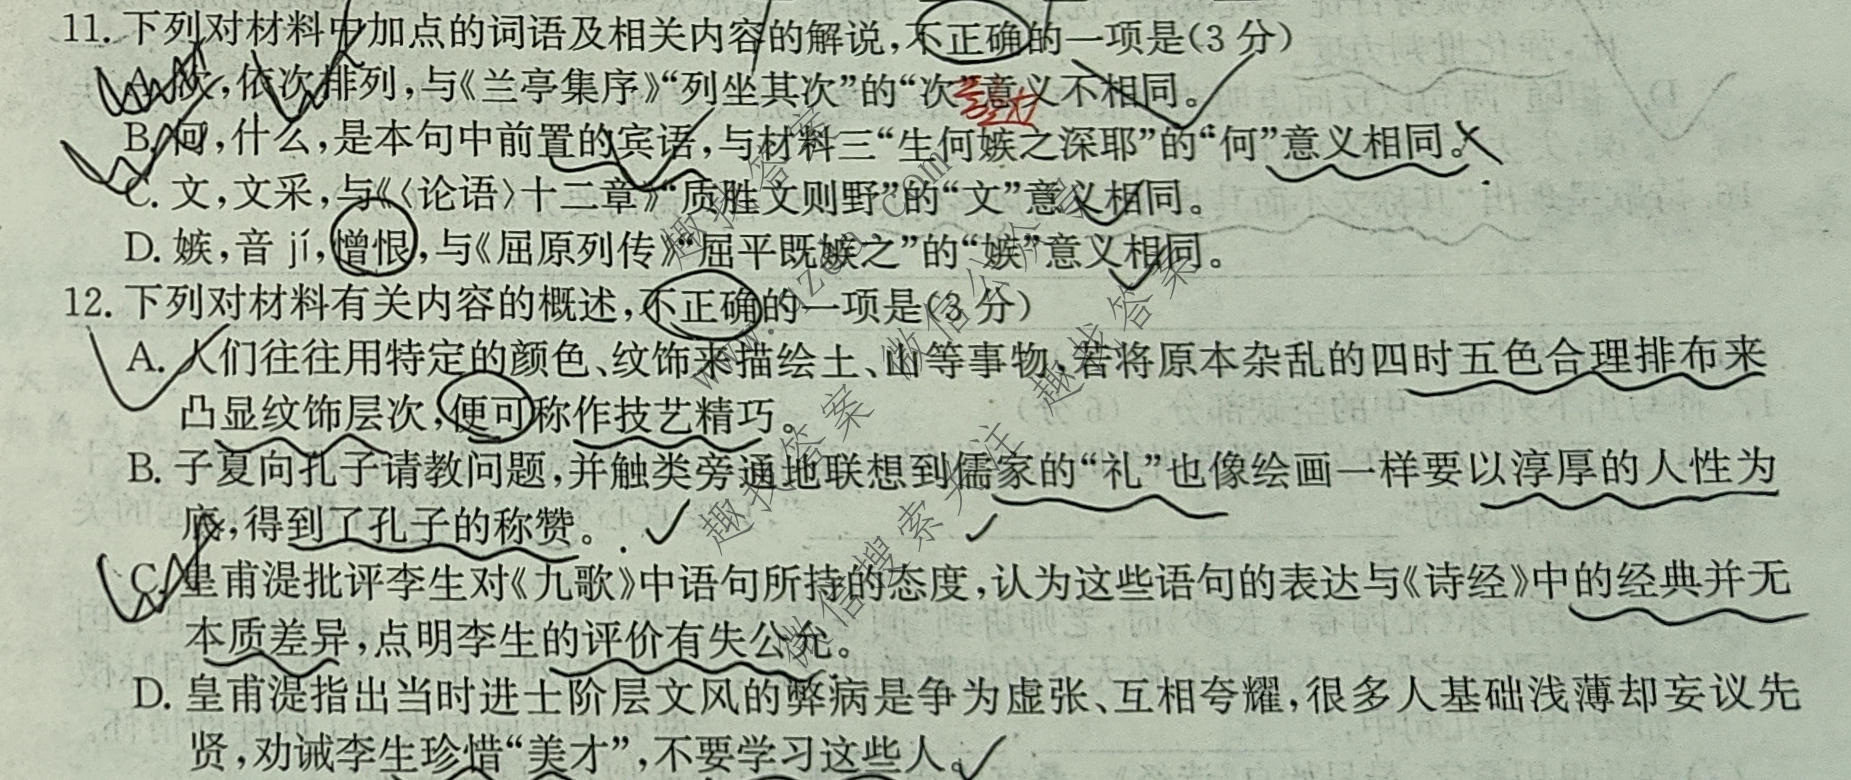 11. 下列对材料中加点的词语及相关内容的解说,不正确的一项是(3 分)
A. 次,依次排列,与《兰亭集序》“列坐其次”的“次”意义不相同。
B. 何,什么,是本句中前置的宾语,与材料三“生何嫉之深耶”的“何”意义相同。
C. 文,文采,与《〈论语〉十二章》“质胜文则野”的“文”意义相同。
D. 嫉,音 jí,憎恨,与《屈原列传》“屈平既嫉之”的“嫉”意义相同。
12. 下列对材料有关内容的概述,不正确的一项是(3 分)
A. 人们往往用特定的颜色、纹饰来描绘土、山等事物,若将原本杂乱的四时五色合理排布来
凸显纹饰层次,便可称作技艺精巧。
B. 子夏向孔子请教问题,并触类旁通地联想到儒家的“礼”也像绘画一样要以淳厚的人性为
底,得到了孔子的称赞。
C. 皇甫湜批评李生对《九歌》中语句所持的态度,认为这些语句的表达与《诗经》中的经典并无
本质差异,点明李生的评价有失公允。
D. 皇甫湜指出当时进士阶层文风的弊病是争为虚张、互相夸耀,很多人基础浅薄却妄议先
贤,劝诫李生珍惜“美才”,不要学习这些人。
趣找答案
微信公众号
趣找答案
趣找答案
微信搜索关注